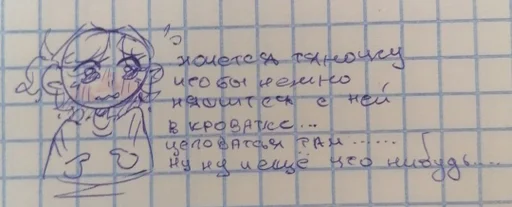 хочется тяночку
чтобы нежно
няшится с ней
в кроватке...
целоваться там......
ну ну и ещё что нибудь....